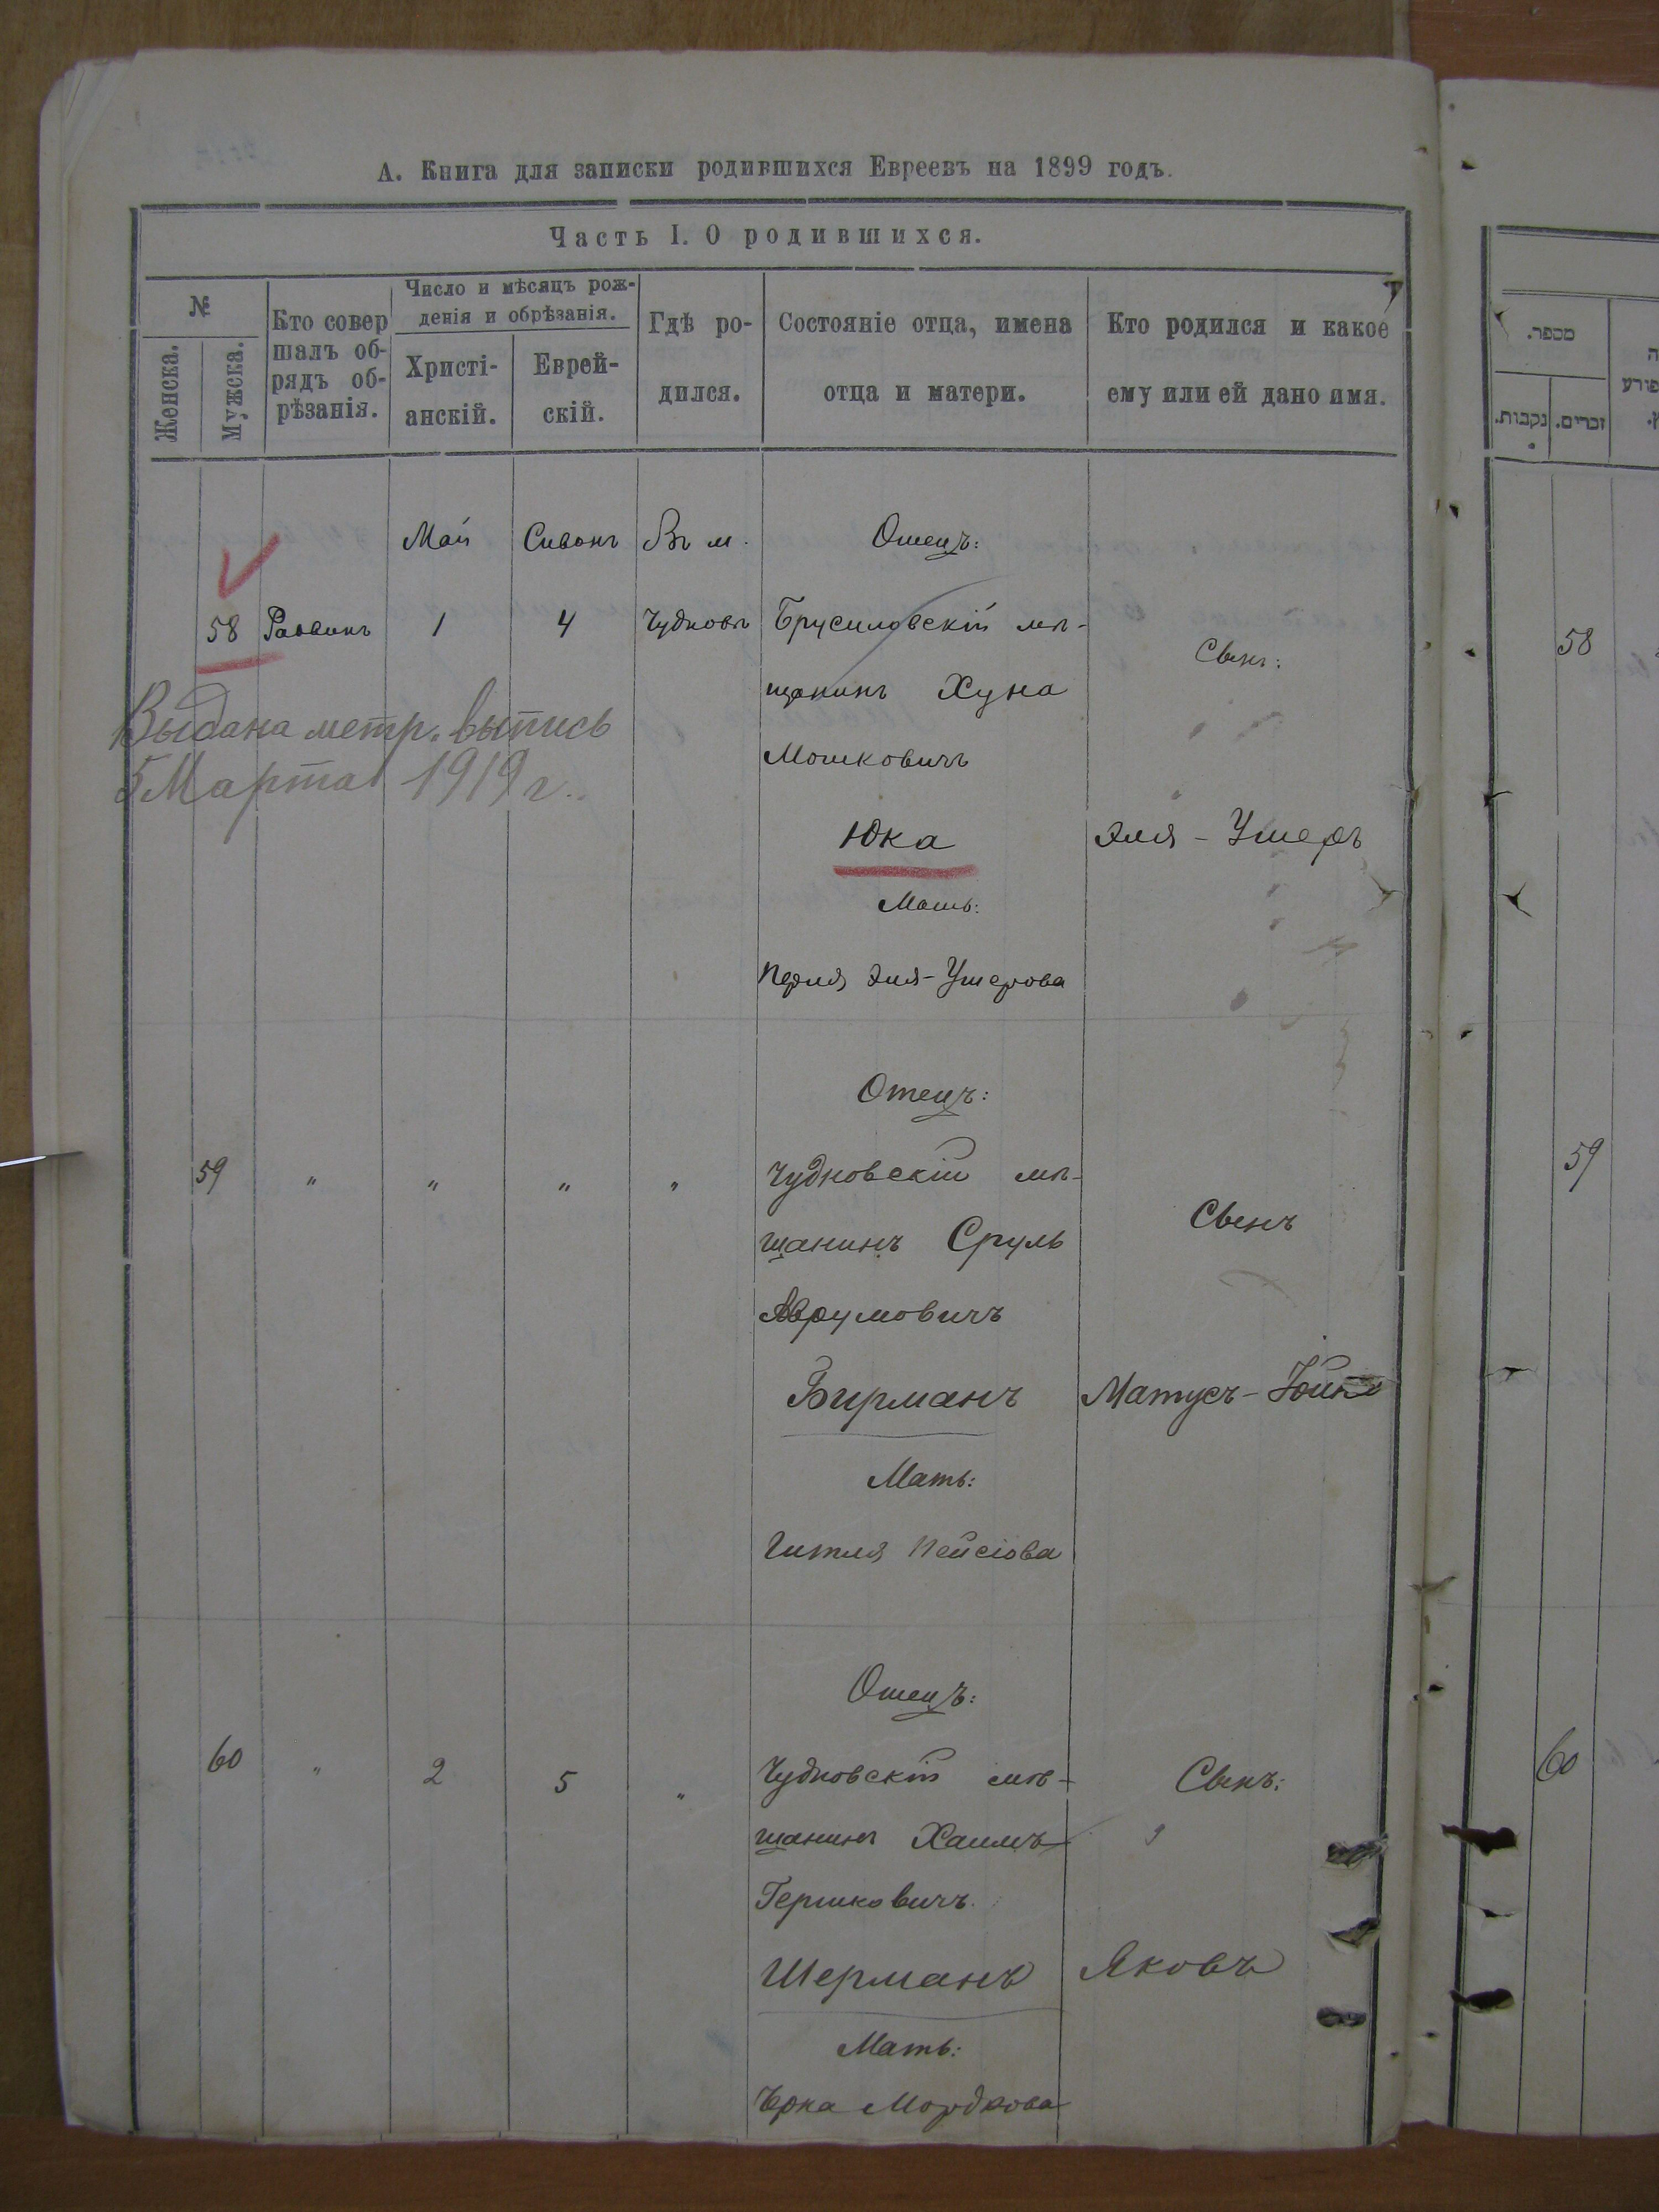 А. Книга для записки родившихся Евреевъ на 1899 годъ.
Часть I. О родившихся.
№
Женска.
Мужска.
Кто совер
шалъ об-
рядъ об-
рѣзанія.
Число и мѣсяцъ рож-
денія и обрѣзанія.
Христі-
анскій.
Еврей-
скій.
Гдѣ ро-
дился.
Состояніе отца, имена
отца и матери.
Кто родился и какое
ему или ей дано имя.
Май Сивонъ Въ м. Отецъ:
58 Раввинъ 1 4 Чудновѣ Брусиловскій мѣ-
щанинъ Хуна
Мошковичъ
Юка
Мать:
Перля Эля-Ушерова
Сынъ:
Эля-Ушеръ
Выдана метр. выпись
5 Марта 1919 г.
Отецъ:
59 " " " " Чудновскій мѣ-
щанинъ Сруль
Аврумовичъ
Бирманъ
Мать:
Гитля Пейсіова
Сынъ
Матусъ-
Отецъ:
60 " 2 5 " Чудновскій мѣ-
щанинъ Хаимъ
Гершковичъ
Шерманъ
Мать:
Мордкова
Сынъ:
Яковъ
מספר.
נקבות.
זכרים.
58
59
60